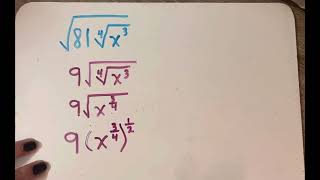 √(81∜(x³))
9√(∜(x³))
9√(x^(3/4))
9(x^(3/4))^(1/2)